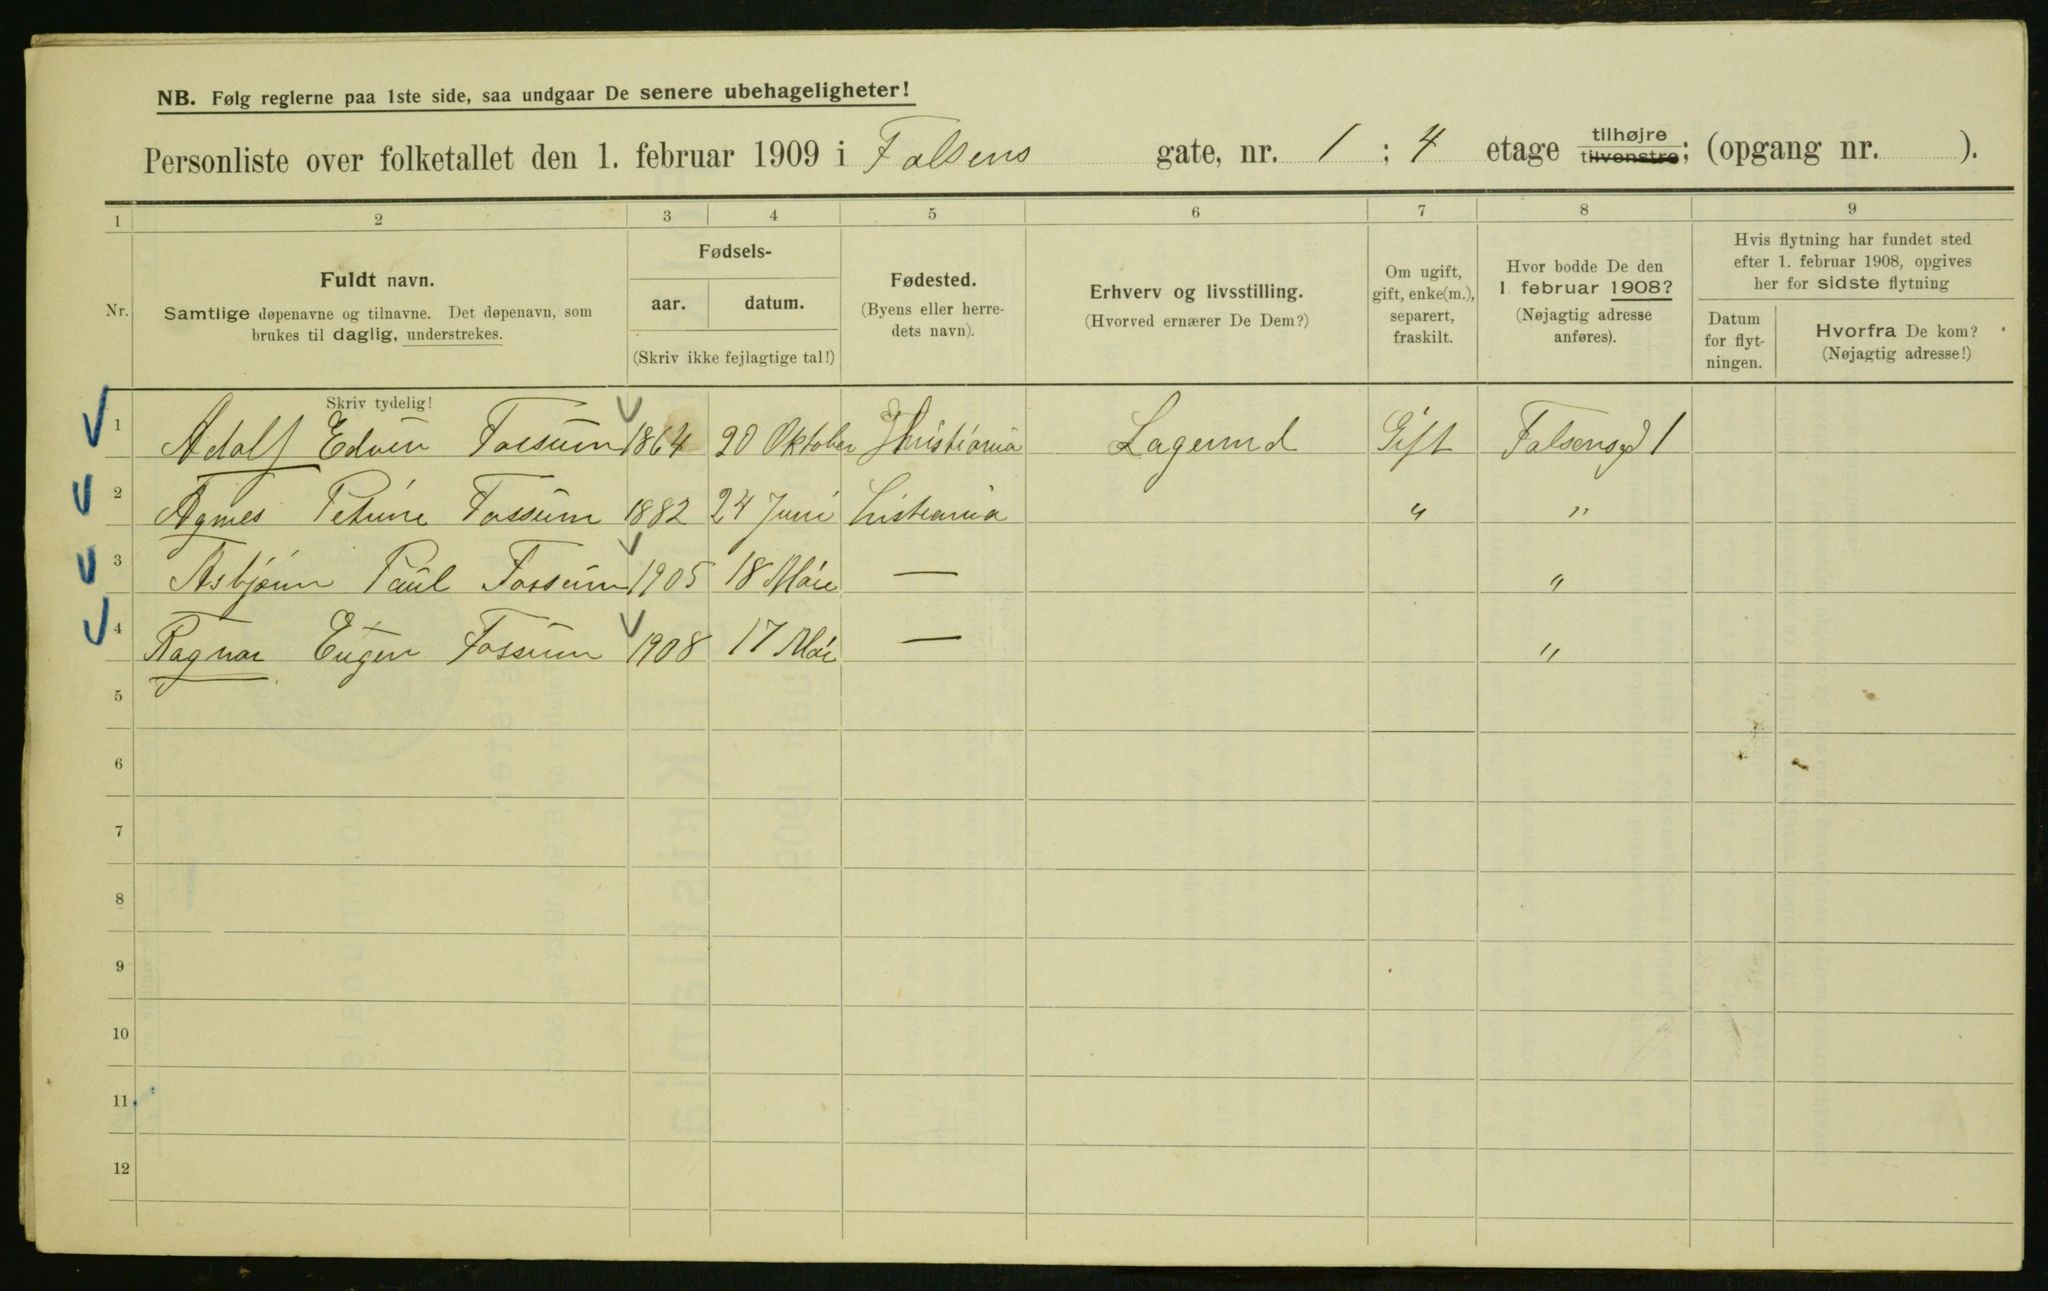 NB. Følg reglerne paa 1ste side, saa undgaar De senere ubehageligheter!
Personliste over folketallet den 1. februar 1909 i Falsens gate, nr. 1 ; 4 etage tilhøjre tilvenstre; (opgang nr. ).
1 2 3 4 5 6 7 8 9
Nr.
Fuldt navn.
Samtlige døpenavne og tilnavne. Det døpenavn, som
brukes til daglig, understrekes.
Fødsels-
aar. datum.
(Skriv ikke fejlagtige tal!)
Fødested.
(Byens eller herre-
dets navn).
Erhverv og livsstilling.
(Hvorved ernærer De Dem?)
Om ugift,
gift, enke(m.),
separert,
fraskilt.
Hvor bodde De den
1. februar 1908?
(Nøjagtig adresse
anføres).
Hvis flytning har fundet sted
efter 1. februar 1908, opgives
her for sidste flytning
Datum
for flyt-
ningen.
Hvorfra De kom?
(Nøjagtig adresse!)
Skriv tydelig!
1 Adolf Edvin Fossum 1864 20 Oktober Kristiania Gift Falsensgd 1
2 Agnes Petrine Fossum 1882 24 Juni Kristiania " "
3 Asbjørn Paul Fossum 1905 18 Mai — "
4 Ragnar Eugen Fossum 1908 17 Mai — "
5
6
7
8
9
10
11
12